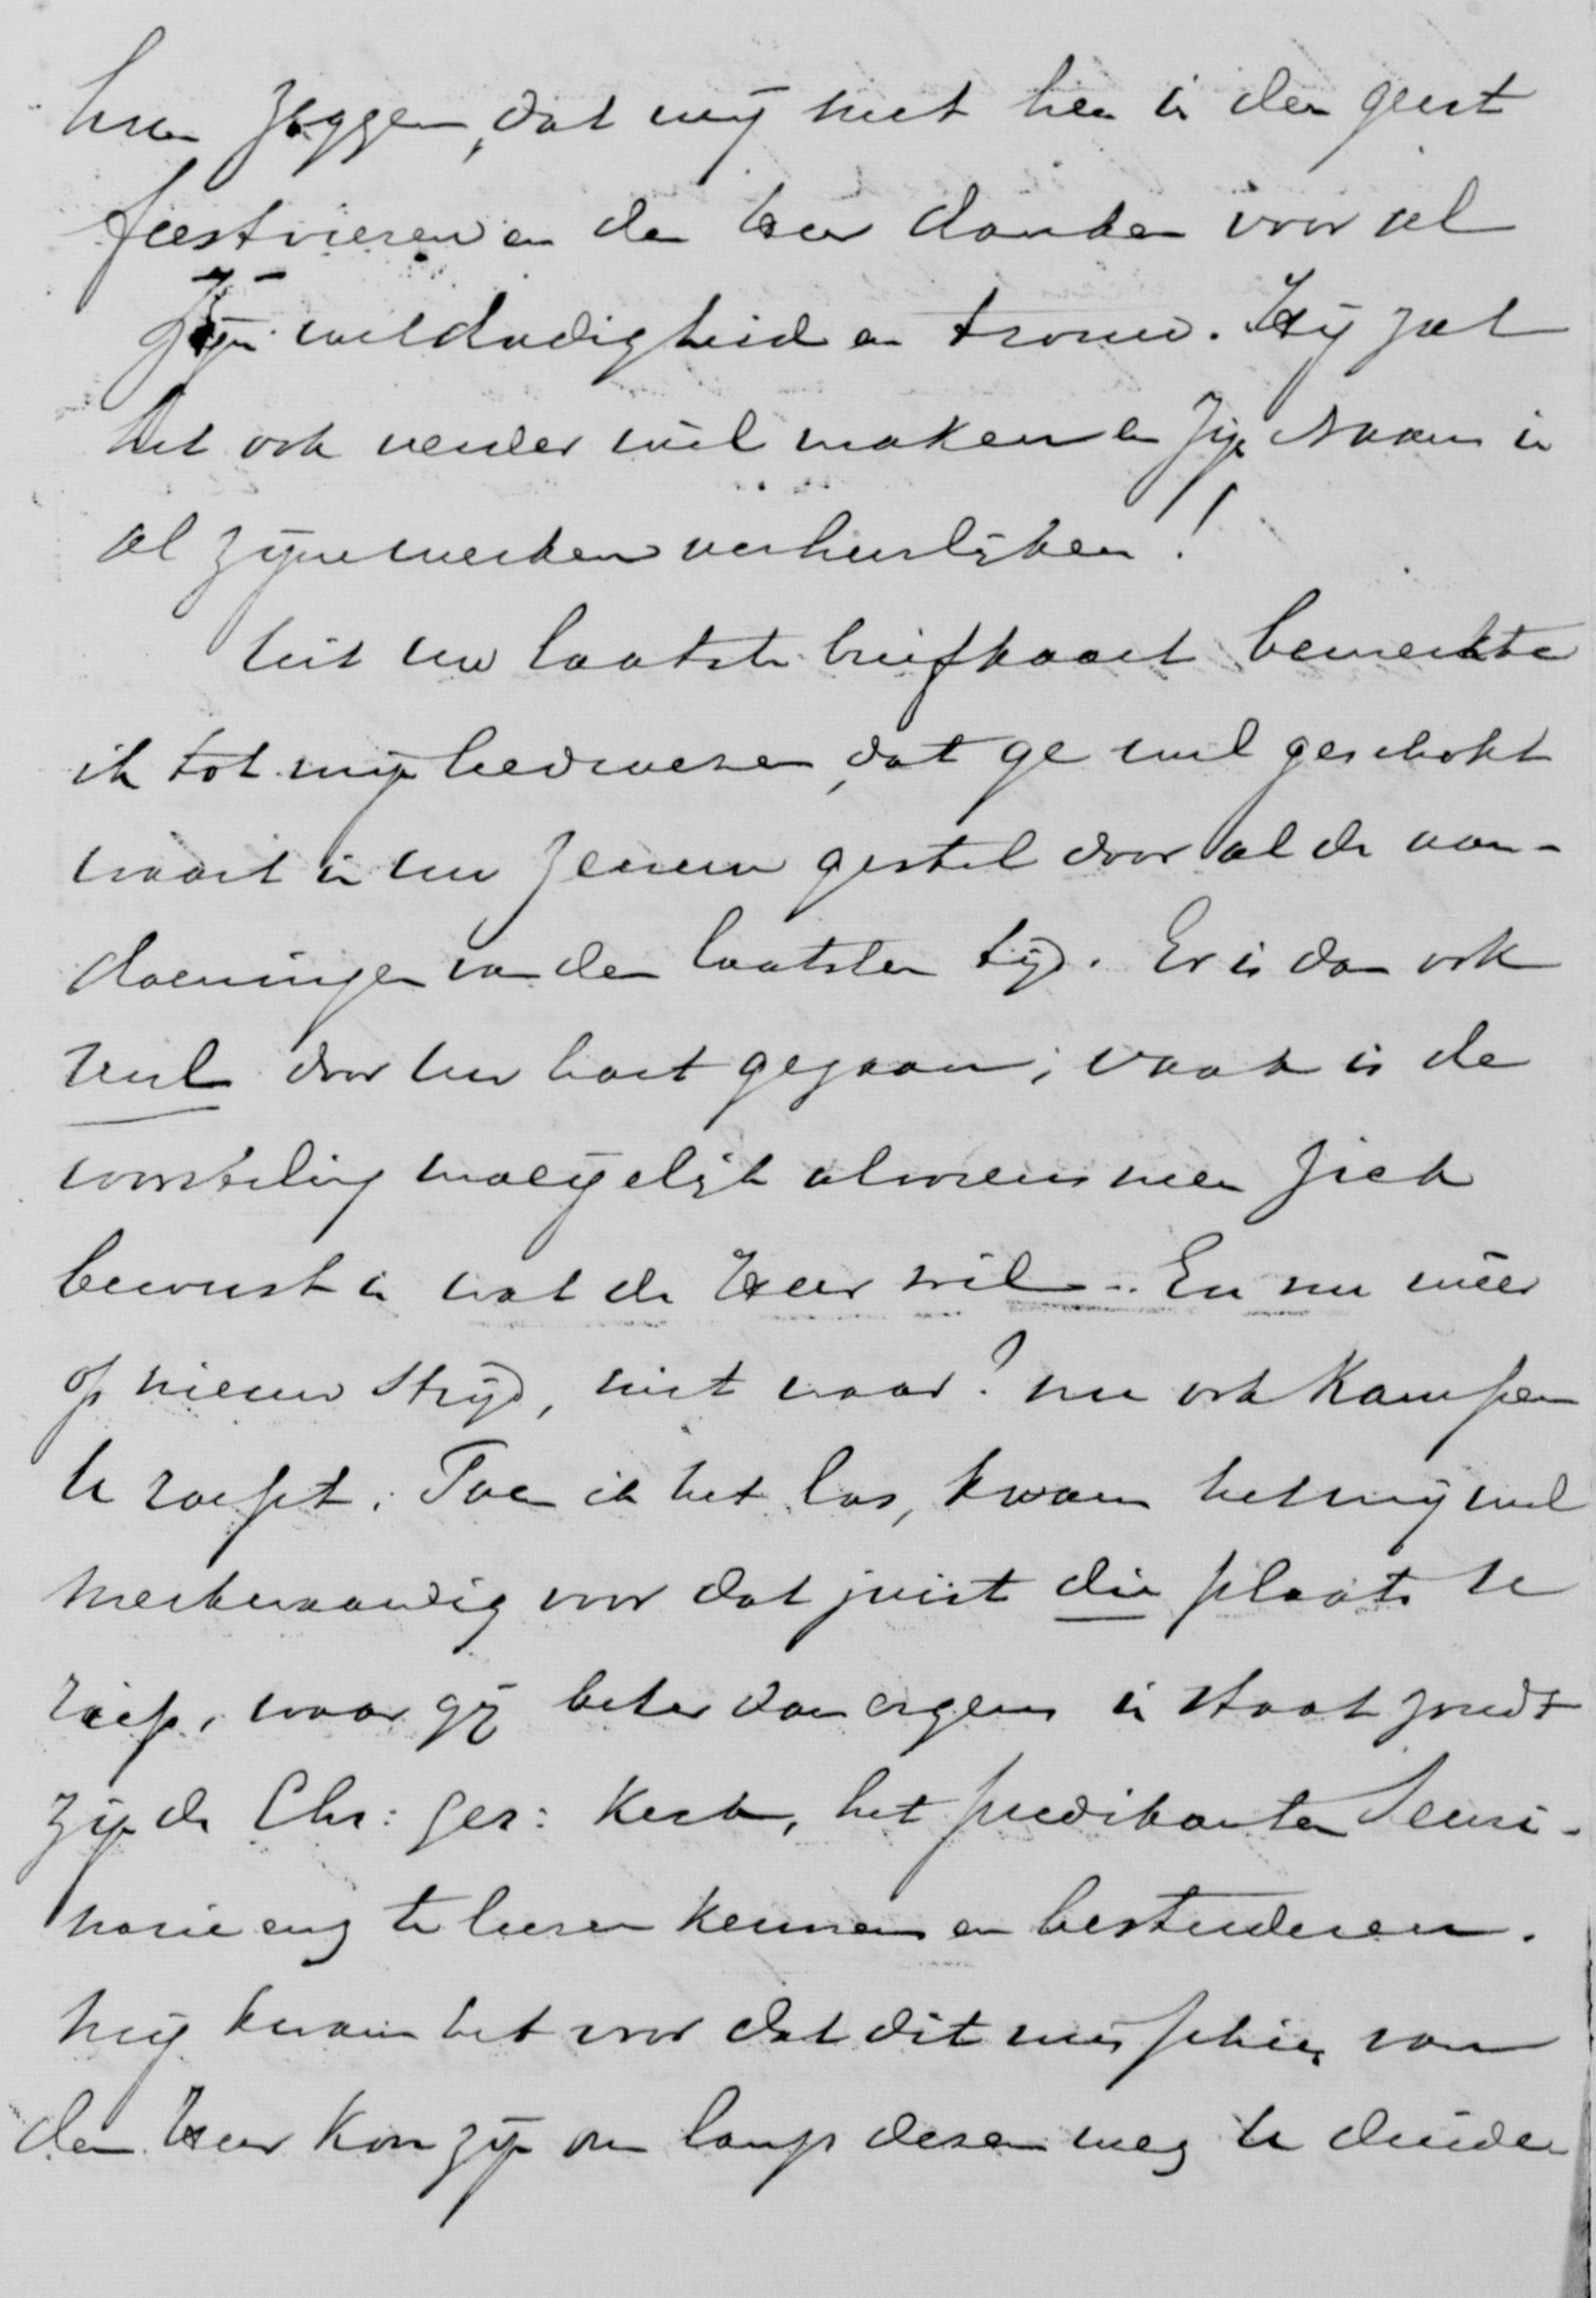 hen zeggen, dat wij met hen in den geest
feestvieren en den Heer danken voor al
Zijn weldadigheid en trouw. Hij zal
het ook verder wel maken en Zijn Naam in
al zijne werken verheerlijken!
Uit uw laatste briefkaart bemerkte
ik tot mijn leedwezen, dat ge veel geschokt
waart in uw zenuw gestel door al de aan-
doeningen van den laatsten tijd. Er is dan ook
veel door uw hart gegaan; vaak is de
worsteling moeijelijk alvorens men zich
bewust is wat de Heer wil. En nu weer
op nieuw strijd, niet waar? nu ook Kampen
U roept. Toen ik het las, kwam het mij wel
merkwaardig voor dat juist die plaats U
riep, waar gij beter dan ergens in staat zoudt
zijn de Chr: Ger: Kerk, het predikanten Semi-
narie enz te leeren kennen en bestuderen.
Mij kwam het voor dat dit misschien van
den Heer kon zijn om langs dezen weg U